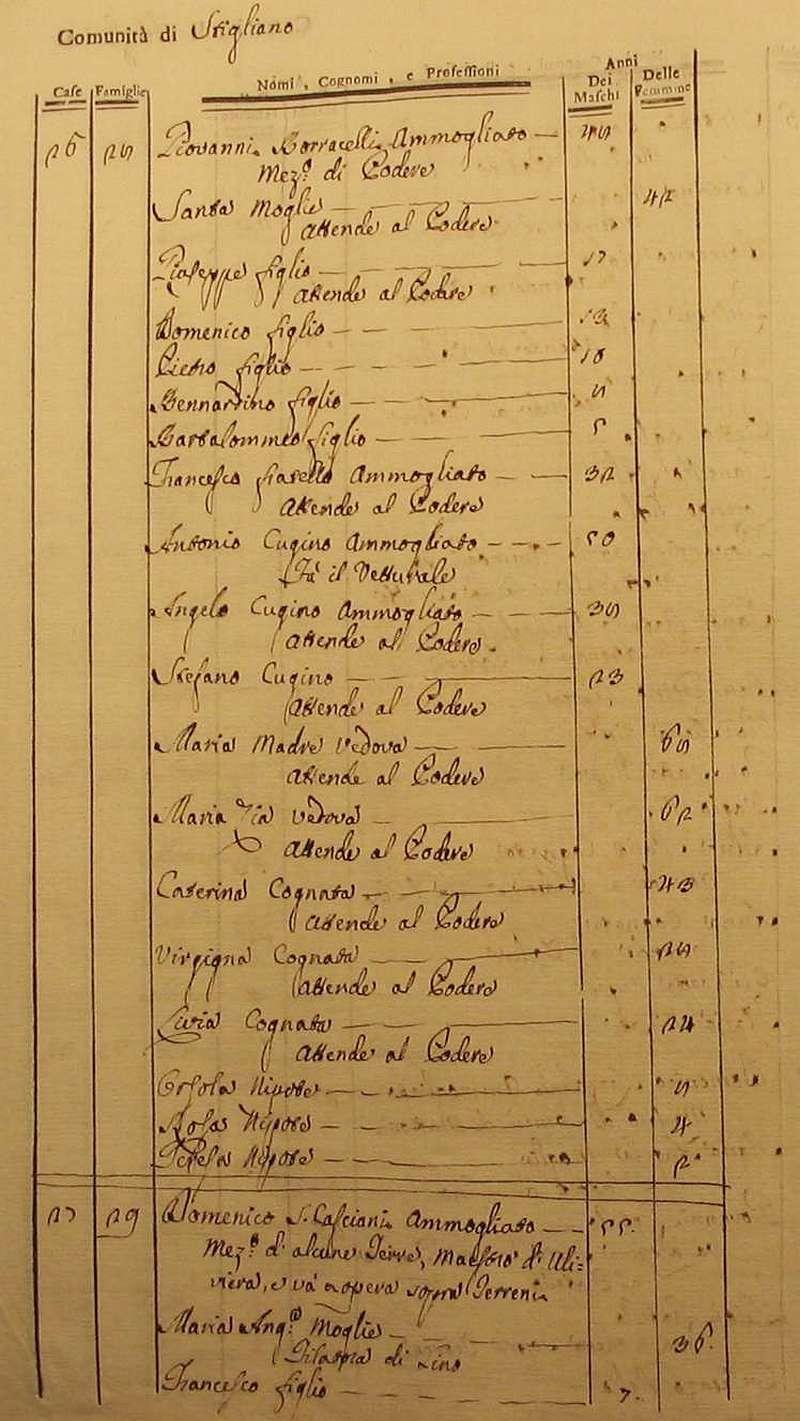 Comunità di Stigliano
Case Famiglie Nomi, Cognomi, e Professioni Anni Dei Maschi Delle Femmine
26 Giovanni Ammogliato —
Mez.º di Podere
Santa Moglie — 42
Attende al Podere
Giuseppe figlio — 17
Attende al Podere
Domenico figlio —
Pietro figlio —
Bernardino figlio —
Bartolommeo figlio —
Francesco fratello Ammogliato — 32
Attende al Podere
Antonio Cugino Ammogliato —
Fà il Vetturale
Angelo Cugino Ammogliato —
Attende al Podere
Stefano Cugino — 23
Attende al Podere
Maria Madre Vedova —
Attende al Podere
Maria Zia Vedova — 62
Attende al Podere
Caterina Cognata — 43
Attende al Podere
Virginia Cognata —
Attende al Podere
Cognata — 24
Attende al Podere
Orsola Nipote —
Rosa Nipote — 4
Teresa Nipote — 2
27 29 Domenico Casciani Ammogliato — 55
Mez.º d'alcune Terre, Maestro d'Uli-
viera, e và a opera sopra Terreni
Maria Ang.ª Moglie — 36
di Lino
Francesco figlio — 7